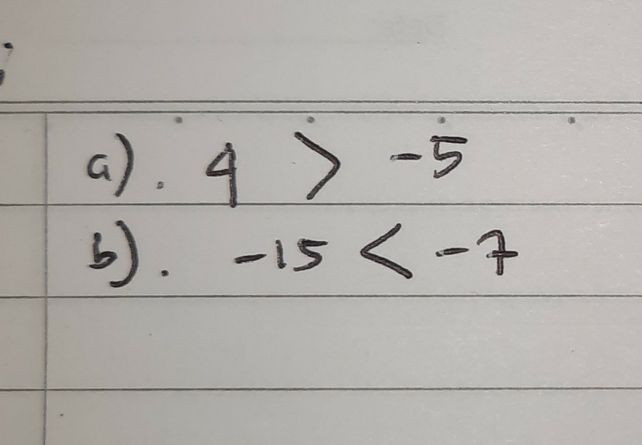 a). 4 > -5
b). -15 < -7